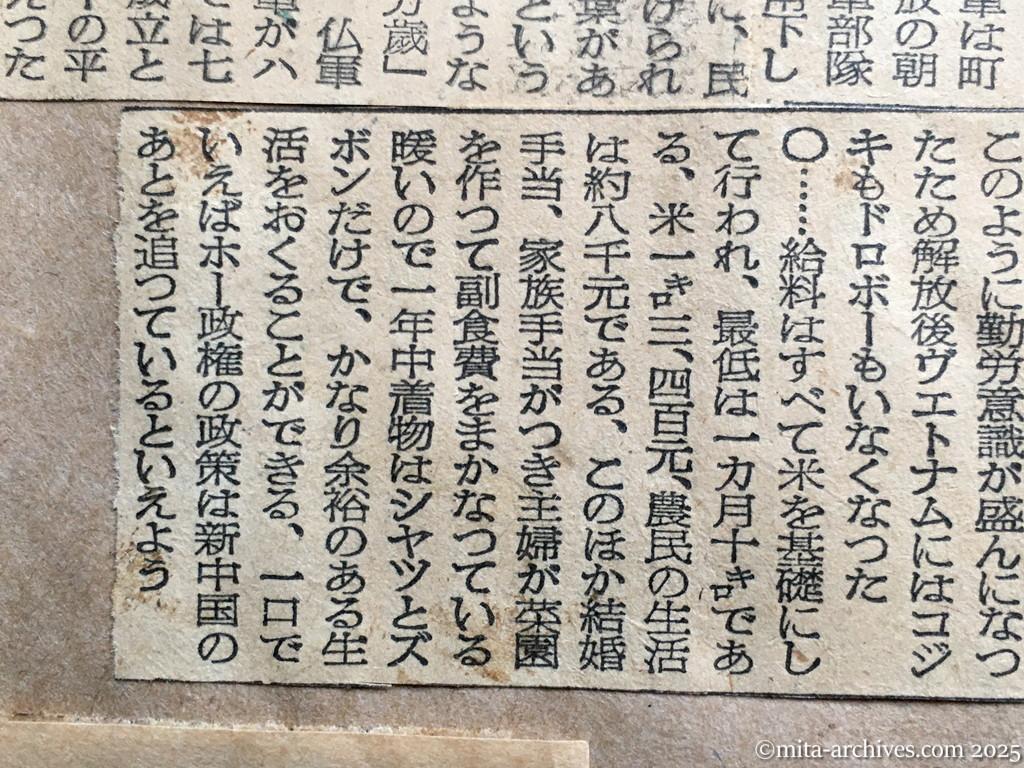 軍は町
放の朝
軍部隊
南下し
に、民
げられ
葉があ
という
ような
万歳」
仏軍
軍がハ
では七
成立と
下の平
えつた
このように勤労意識が盛んになつ
たため解放後ヴエトナムにはコジ
キもドロボーもいなくなつた
〇……給料はすべて米を基礎にし
て行われ、最低は一カ月十㌔であ
る、米一㌔三、四百元、農民の生活
は約八千元である、このほか結婚
手当、家族手当がつき主婦が菜園
を作つて副食費をまかなつている
暖いので一年中着物はシヤツとズ
ボンだけで、かなり余裕のある生
活をおくることができる、一口で
いえばホー政権の政策は新中国の
あとを追つているといえよう
©mita-archives.com 2025